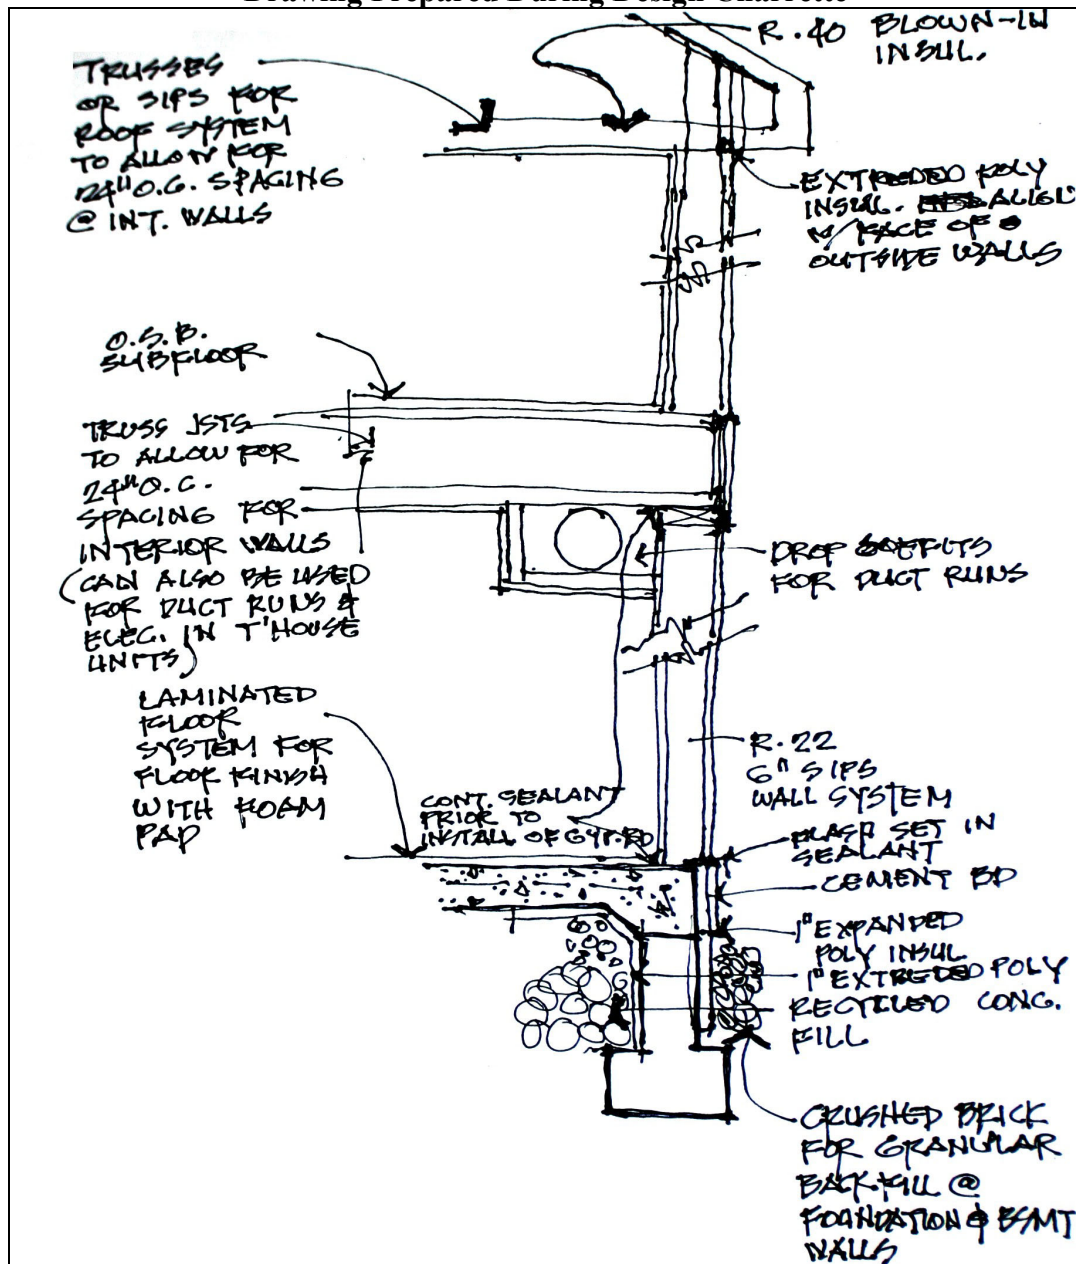 Drawing Prepared During Design Charrette
R.40 BLOWN-IN
INSUL.
TRUSSES
OR SIPS FOR
ROOF SYSTEM
TO ALLOW FOR
24" O.C. SPACING
@ INT. WALLS
EXTRUDED POLY
INSUL. ALIGN
W/FACE OF
OUTSIDE WALLS
O.S.B.
SUBFLOOR
TRUSS JSTS
TO ALLOW FOR
24" O.C.
SPACING FOR
INTERIOR WALLS
(CAN ALSO BE USED
FOR DUCT RUNS &
ELEC. IN T'HOUSE
UNITS)
DROP SOFFITS
FOR DUCT RUNS
LAMINATED
FLOOR
SYSTEM FOR
FLOOR FINISH
WITH FOAM
PAD
CONT. SEALANT
PRIOR TO
INSTALL OF GYP. BD
R.22
6" SIPS
WALL SYSTEM
FLASH SET IN
SEALANT
CEMENT BD
1" EXPANDED
POLY INSUL
1" EXTRUDED POLY
RECYCLED CONC.
FILL
CRUSHED BRICK
FOR GRANULAR
BACKFILL @
FOUNDATION & BSMT
WALLS